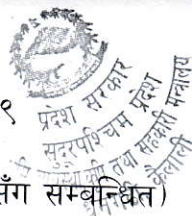 प्रदेश सरकार
सुदूरपश्चिम प्रदेश
तथा सहकारी मन्त्रालय
कैलाली
९
सँग सम्बन्धित)